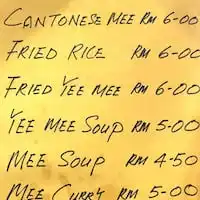 CANTONESE MEE RM 6-00
FRIED RICE RM 6-00
FRIED YEE MEE RM 6-00
YEE MEE SOUP RM 5-00
MEE SOUP RM 4-50
MEE CURRY RM 5-00